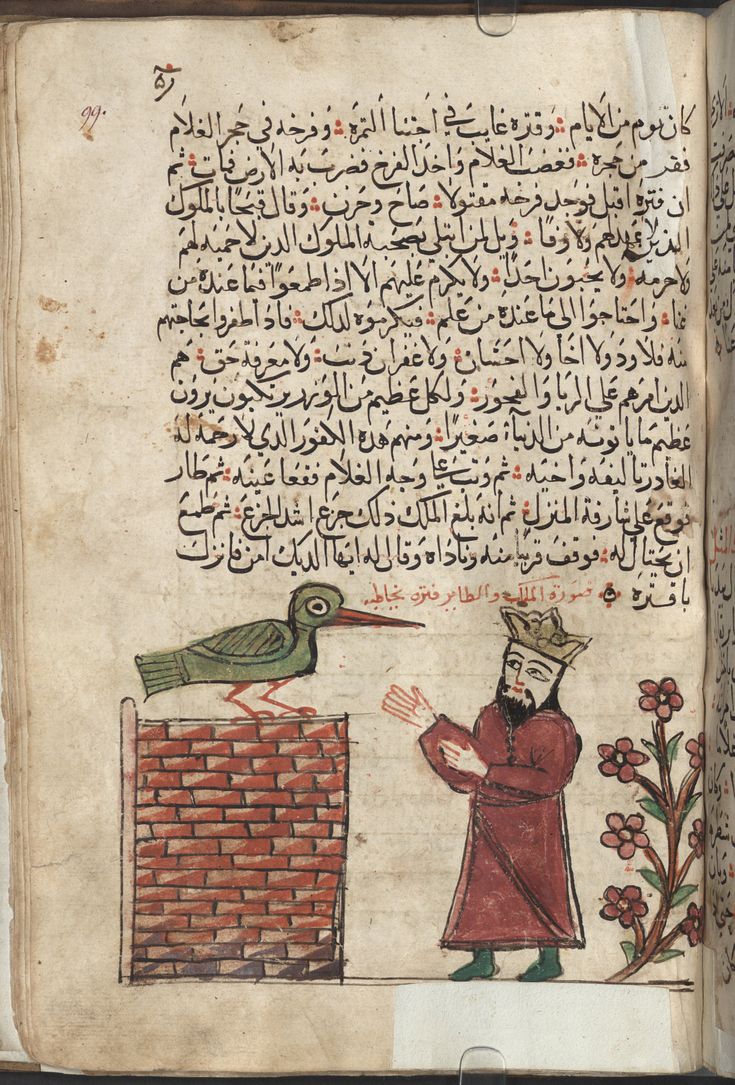 ٥٩
99.
كان يوم من الايام ۞ وفتره غايب في اجتنا التمره ۞ وفرخه في حجر الغلام
فقدر من حجره ۞ فغضب الغلام واخذ الفرخ فضرب به الارض فمات ۞ ثم
ان فتره اقبل فوجد فرخه مقتولا ۞ صاح وحزن ۞ وقال قبحا بالملوك
الذين لا عهد لهم ولا وفا ۞ ويل لمن ابتلي بصحبة الملوك الذين لا حميه لهم
ولا حرمه ۞ ولا يحبون احدا ۞ ولا يكرم عليهم الا اذا طمعوا فيما عنده من
غنا ۞ واحتاجوا الى ما عنده من علم ۞ فيكرموه لذلك ۞ فاذا ظفروا بحاجتهم
منه فلا ود ولا اخا ولا احسان ۞ ولا غفران ذنب ۞ ولا معرفة حق ۞ هم
الذين امرهم علي الريا والفجور ۞ ولكل عظيم من الذنوب يرتكبون يرون
عظيم ما ياتونه من الدنيا ۞ صغيرا ۞ ومنهم هذه الكفور الذي لا رحمة له
الغادر باليفه واخيه ۞ ثم وثب علي وجه الغلام ففقا عينيه ۞ ثم طار
فوقع علي شارفة المنزل ۞ ثم انه بلغ الملك ذلك جزع اشد الجزع ۞ ثم طمع
ان يحتال له ۞ فوقف قريبا منه وناداه وقال له ايها الديك امن فانزل
يا فتره ۞ صورة الملك والطاير فتره يخاطبه